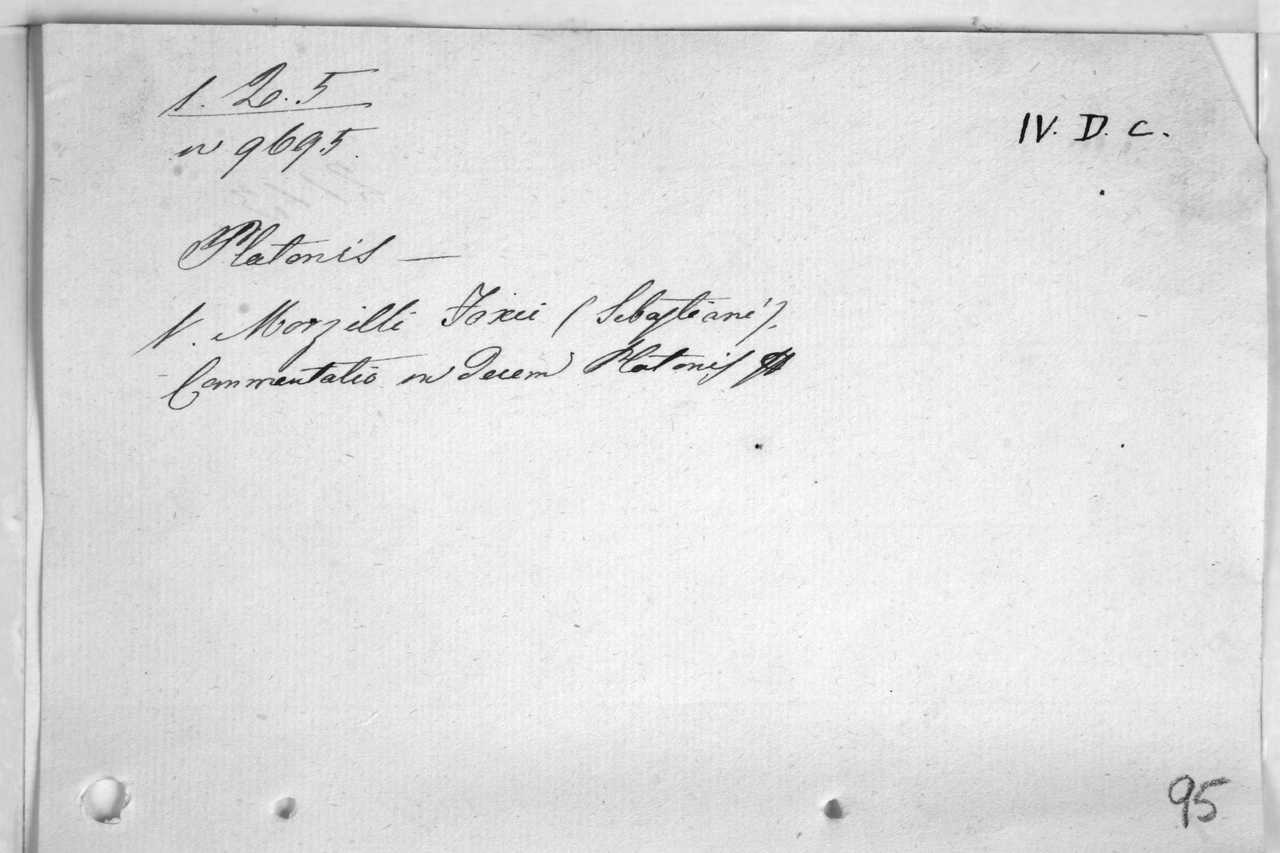 1. 2. 5
n 9695.
IV. D. c.
Platonis —
V. Morzilli Foxii (Sebastiani).
Commentatio in decem Platonis
95